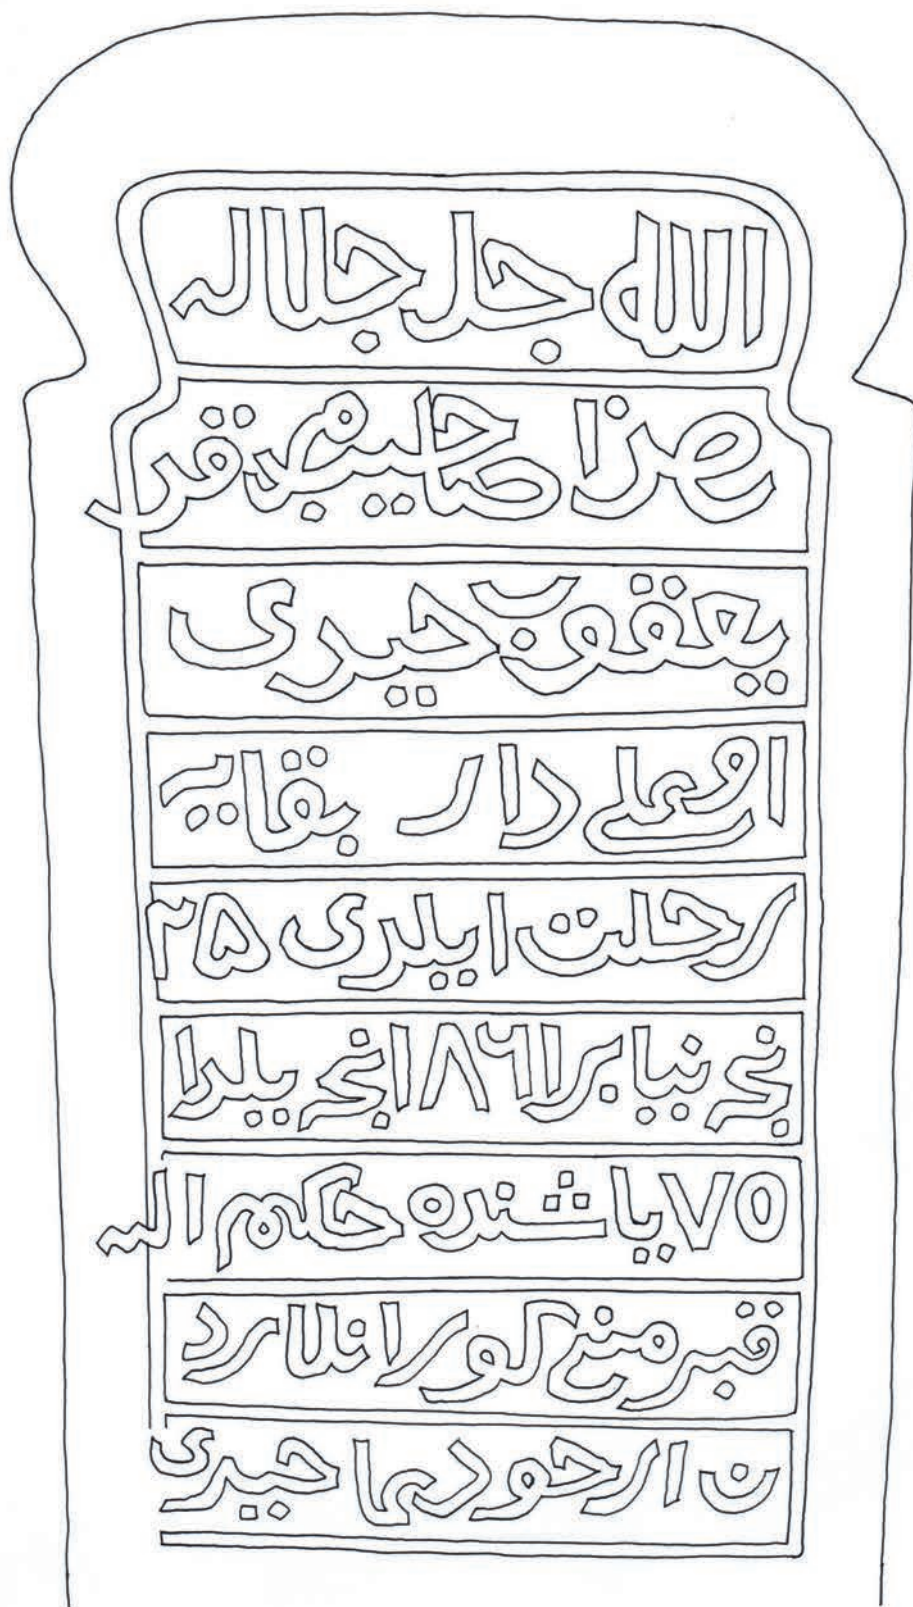 الله جل جلاله
هزا صاحیب قر
یعقوب حیدری
اوعلی دار بقایه
رحلت ایلدی ۲۵
نجی نیابرا ۱۸۶۱ نجی یلدا
۷۵ یاشنده حکم اله
قبرمنی کورانلارد
ن ارخودیما حیدری